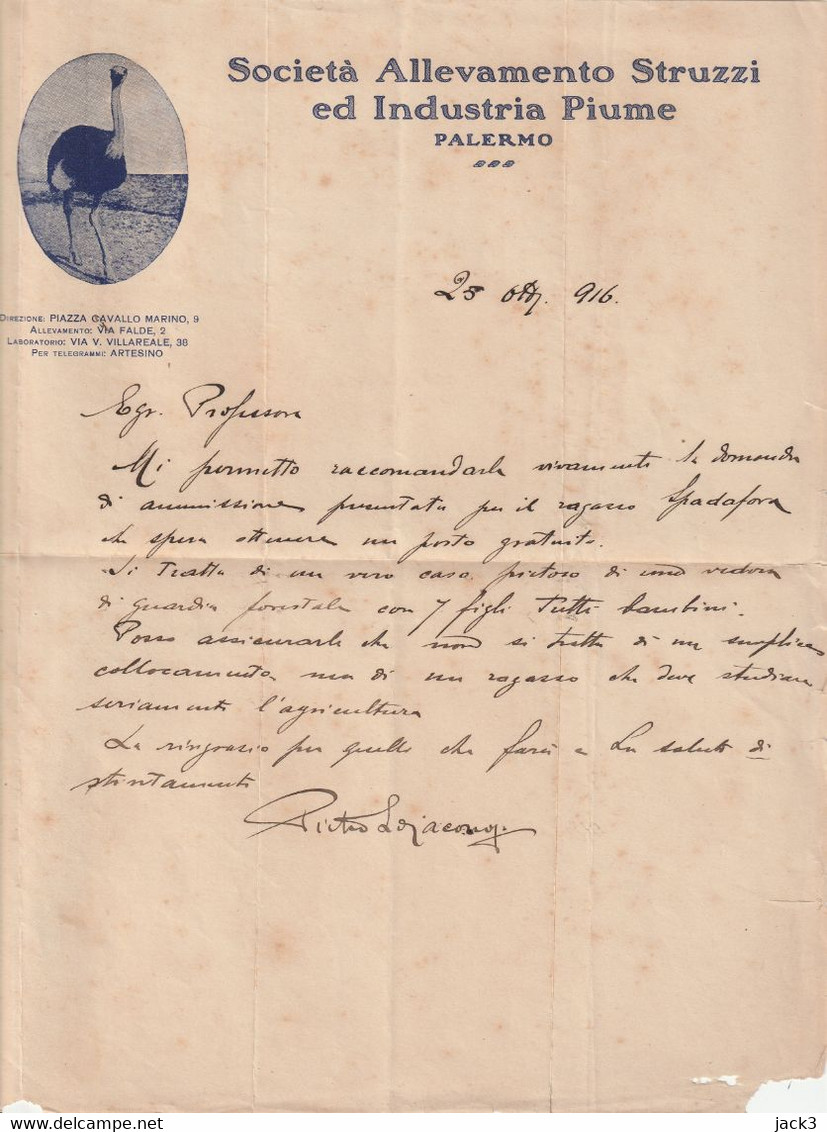 Società Allevamento Struzzi
ed Industria Piume
PALERMO
25 Ott. 916.
DIREZIONE: PIAZZA CAVALLO MARINO, 9
ALLEVAMENTO: VIA FALDE, 2
LABORATORIO: VIA V. VILLAREALE, 38
PER TELEGRAMMI: ARTESINO
Egr. Professore
Mi permetto raccomandarle vivamente la domanda
di ammissione presentata per il ragazzo Spadafora
che spera ottenere un posto gratuito.
Si tratta di un vero caso pietoso di una vedova
di guardia forestale con 7 figli tutti bambini.
Posso assicurarle che non si tratta di un semplice
collocamento ma di un ragazzo che deve studiare
seriamente l'agricoltura
La ringrazio per quello che farà e La saluto di
stintamente
Pietro Lojacono
delcampe.net
jack3